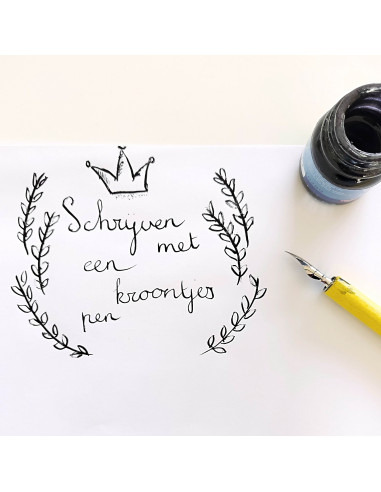 Schrijven
met
een
kroontjes
pen